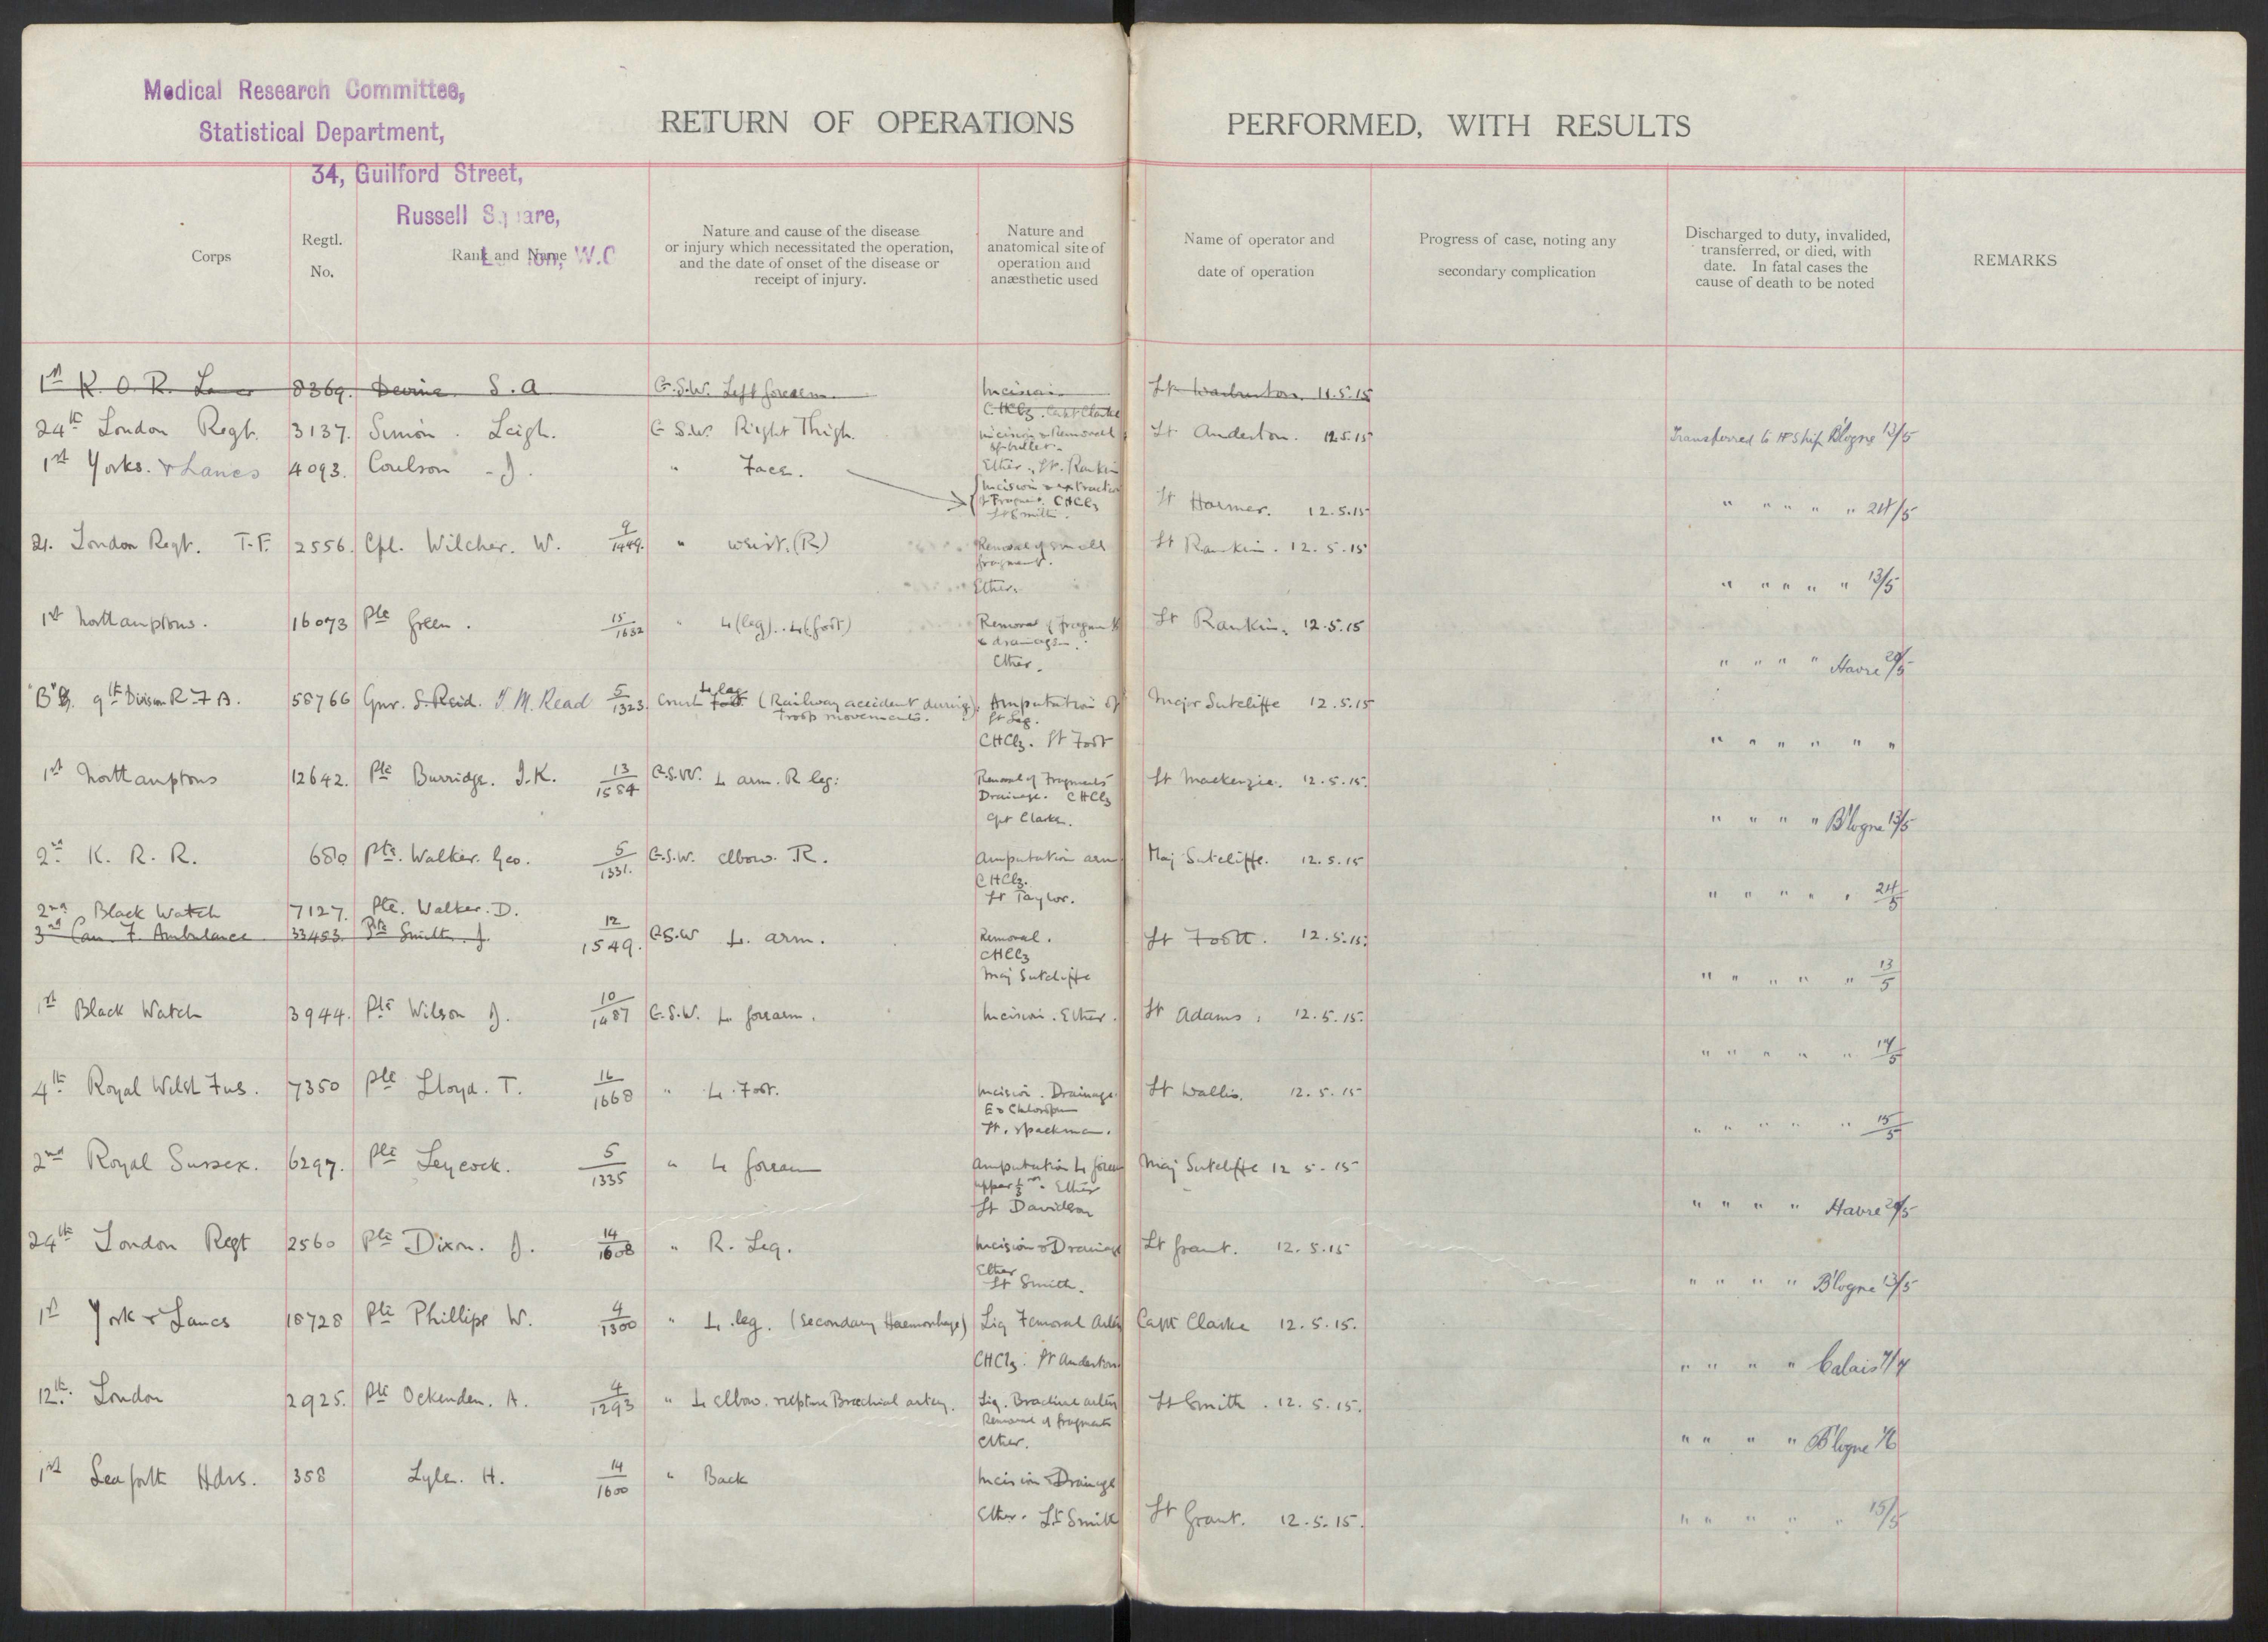 Medical Research Committee,
Statistical Department,
34, Guilford Street,
Russell Square,
W.C
RETURN OF OPERATIONS PERFORMED, WITH RESULTS
Corps
Regtl. No.
Rank and Name
Nature and cause of the disease or injury which necessitated the operation, and the date of onset of the disease or receipt of injury.
Nature and anatomical site of operation and anæsthetic used
Name of operator and date of operation
Progress of case, noting any secondary complication
Discharged to duty, invalided, transferred, or died, with date. In fatal cases the cause of death to be noted
REMARKS
1st K. O. R. 8369. Devine S. A G.S.W. Left forearm. Incision Lt Warburton. 11.5.15
CHCl3. Capt Clarke
24th London Regt. 3137. Simon. Leigh. G.S.W. Right Thigh. Incision & Removal of bullet. Lt Anderton. 12.5.15 Transferred to HP Ship B'logne 13/5
Ether, Lt. Rankin
1st Yorks. & Lancs 4093. Coulson - J. " Face. Incision & extraction of Fragmt. CHCl3 Lt Harmer. 12.5.15 " " " " " 24/5
Lt Smith.
21. London Regt. T.F. 2556. Cpl. Wilcher. W. 9/1449. " wrist. (R) Removal of small fragment. Lt Rankin. 12.5.15 " " " " " 13/5
Ether.
1st Northamptons. 16073 Pte Green. 15/1632 " L (leg).. L (foot) Removal of fragments & drainage. Lt Rankin. 12.5.15 " " " " Havre 20/5
Ether.
"B" By. 9th Division R F A. 58766 Gnr. S. Reid. T. M. Read 5/1323. Crush L leg Foot (Railway accident during troop movements. Amputation of Lt Leg. Major Sutcliffe 12.5.15 " " " " " "
CHCl3. Lt Foott
1st Northamptons 12642. Pte Burridge. J.K. 13/1584 G.S.W. L arm. R leg: Removal of Fragments Drainage. CHCl3 Lt Mackenzie. 12.5.15. " " " " B'logne 13/5
Cpt Clarke.
2nd K. R. R. 680 Pte. Walker. Geo. 5/1331. G.S.W. elbow. R. Amputation arm Maj Sutcliffe. 12.5.15 " " " " " 24/5
CHCl3.
Lt Taylor.
2nd Black Watch 7127. Pte. Walker. D.
3rd Can. F. Ambulance 33453. Pte Smith. J. 12/1549. G.S.W L. arm. Removal. Lt Foott. 12.5.15. " " " " " 13/5
CHCl3
Maj Sutcliffe
1st Black Watch 3944. Pte Wilson J. 10/1487 G.S.W. L. forearm. Incision. Ether. Lt Adams. 12.5.15.
4th Royal Welsh Fus. 7350 Pte Lloyd. T. 16/1668 " L. Foot. Incision. Drainage. Lt Wallis. 12.5.15 " " " " " 15/5
E & Chloroform
Lt. Spackman.
2nd Royal Sussex. 6297. Pte Leycock. 5/1335 " L forearm Amputation L forearm upper 1/3rd. Ether Maj Sutcliffe 12 5.15 " " " " Havre 20/5
Lt Davidson
24th London Regt 2560 Pte Dixon. J. 14/1608 " R. Leg. Incision & Drainage Lt Grant. 12.5.15 " " " " B'logne 13/5
Ether
Lt Smith.
1st York & Lancs 18728 Pte Phillips W. 4/1300 " L. leg. (Secondary Haemorrhage) Lig Femoral Artery Capt Clarke 12.5.15. " " " " Calais
CHCl3. Lt Anderton.
12th. London 2925. Pte Ockenden. A. 4/1293 " L elbow. rupture Brachial artery. Lig. Brachial artery Removal of fragments Lt Smith. 12.5.15. " " " " B'logne
Ether.
1st Seaforth Hdrs. 358 Lyle. H. 14/1600 " Back Incision & Drainage
Ether. Lt Smith Lt Grant. 12.5.15. " " " " " 15/5